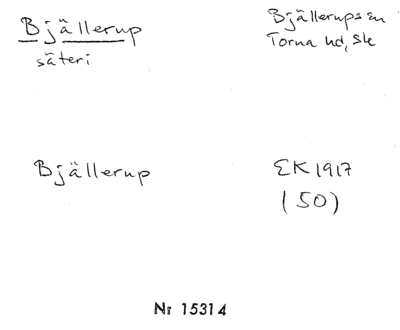 Bjällerup
säteri
Bjällerups sn
Torna hd, Sk
Bjällerup
EK 1917
(50)
Nr 15314